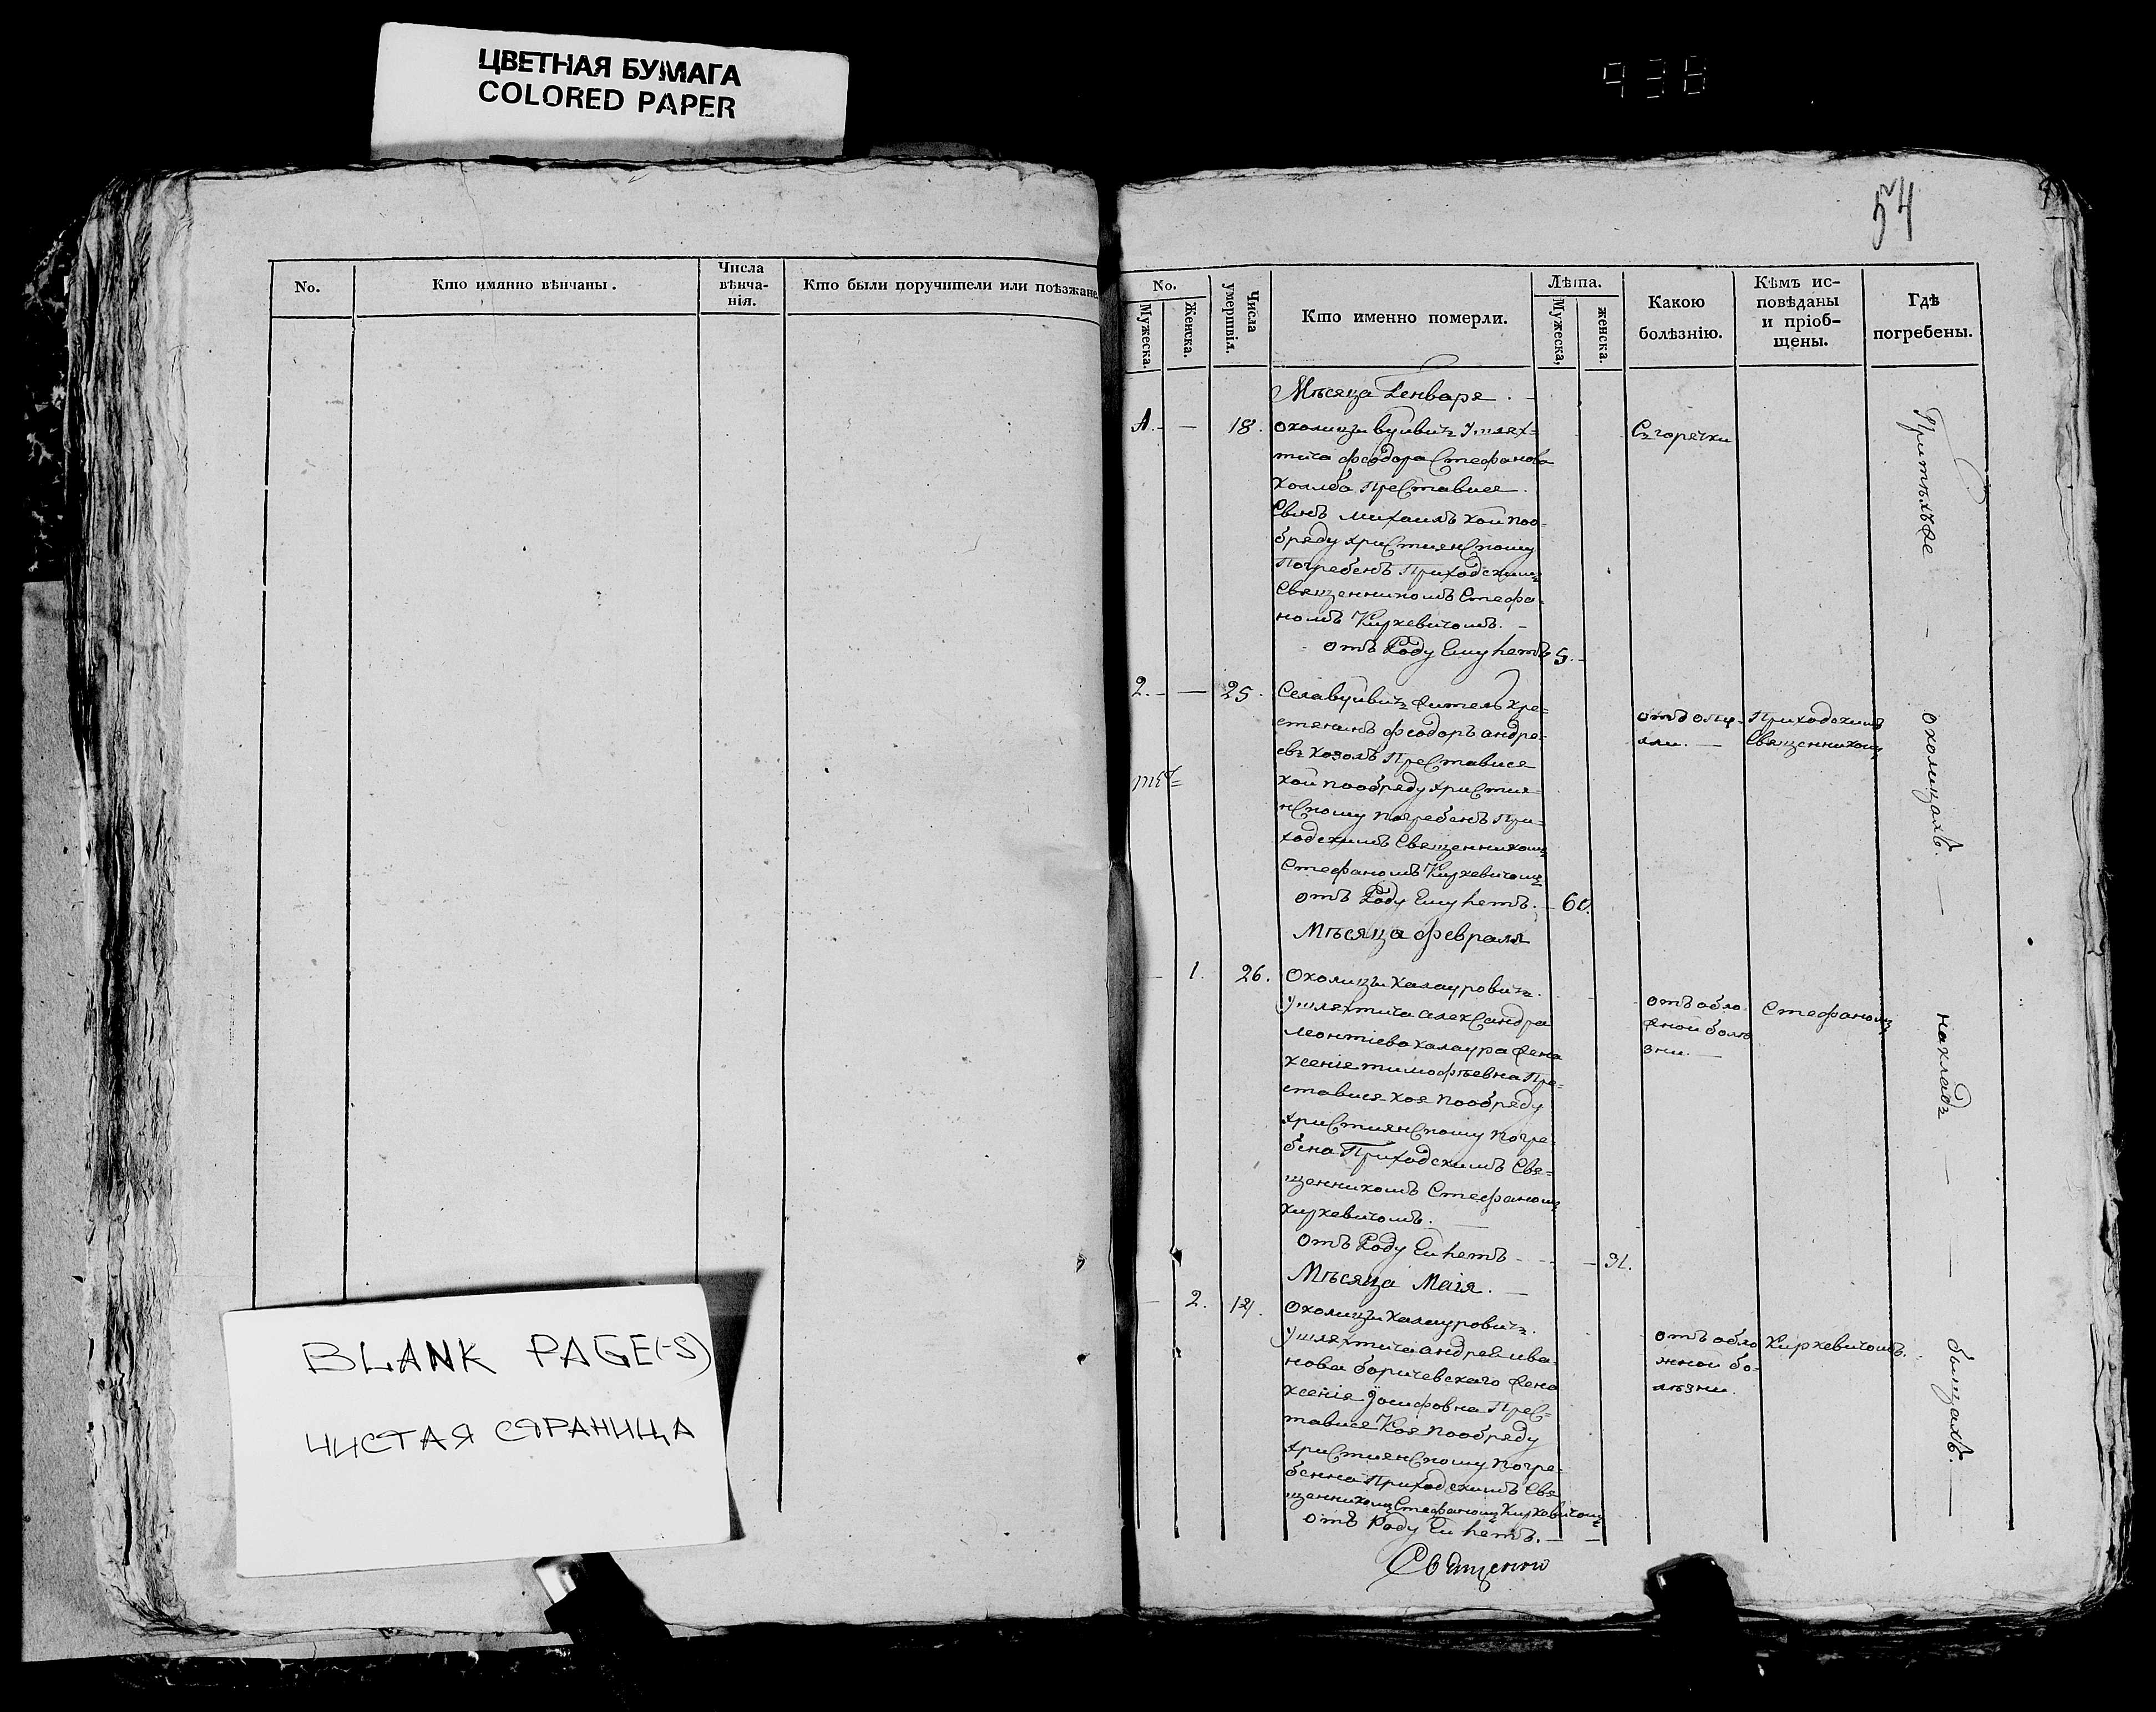 ЦВЕТНАЯ БУМАГА
COLORED PAPER
938
54
No.
Кто имянно вѣнчаны.
Числа вѣнча-
нія.
Кто были поручители или поѣзжане
BLANK PAGE(-S)
ЧИСТАЯ СТРАНИЦА
No.
Мужеска.
Женска.
Числа умертвія.
Кто именно померли.
Лѣта.
Мужеска,
женска.
Какою
болѣзнію.
Кѣмъ ис-
повѣданы
и пріоб-
щены.
Гдѣ
погребены.
Мѣсяца Генваря
18. околицы вуивичъ Ушлях-
тича Феодора Стефанова
Преставися
Сынъ Михаилъ кой поо-
бряду християнскому
Погребенъ Приходскимъ
Священникомъ Стефа-
номъ Киркевичомъ.
отъ Роду Ему летъ 5.
Съ горячки
2. — 25. Села вуивичъ житель кре-
стянинъ Феодоръ андре-
евъ козолъ Преставися
кой пообряду христия-
нскому погребенъ При-
ходскимъ Священникомъ
Стефаномъ Киркевичомъ
отъ Роду Ему летъ. 60.
Приходскимъ
Священникомъ
Мѣсяца Февраля
— 1. 26. Околицы калауровичъ.
Ушляхтича александра
леонтіева калаура жена
ксенія тимофѣевна Пре-
ставися коя пообряду
християнскому погре-
бена Приходскимъ Свя-
щенникомъ Стефаномъ
киркевичомъ.
отъ Роду Ей летъ
отъ обло-
жной болѣ
зни.
Стефаномъ
Мѣсяца Маія.
— 2. Околицы калауровичъ.
Ушляхтича андрея ива-
нова боричевского жена
ксенія Іосифовна Прес-
тавися Коя пообряду
християнскому погре-
бенна Приходскимъ Свя
щенникомъ Стефаномъ Киркевичомъ
отъ Роду Ей летъ.
отъ обло
жной бо-
лѣзни.
Киркевичомъ.
Притѣхъже — околицахъ. — накладъ — — бищахъ. —
Священно